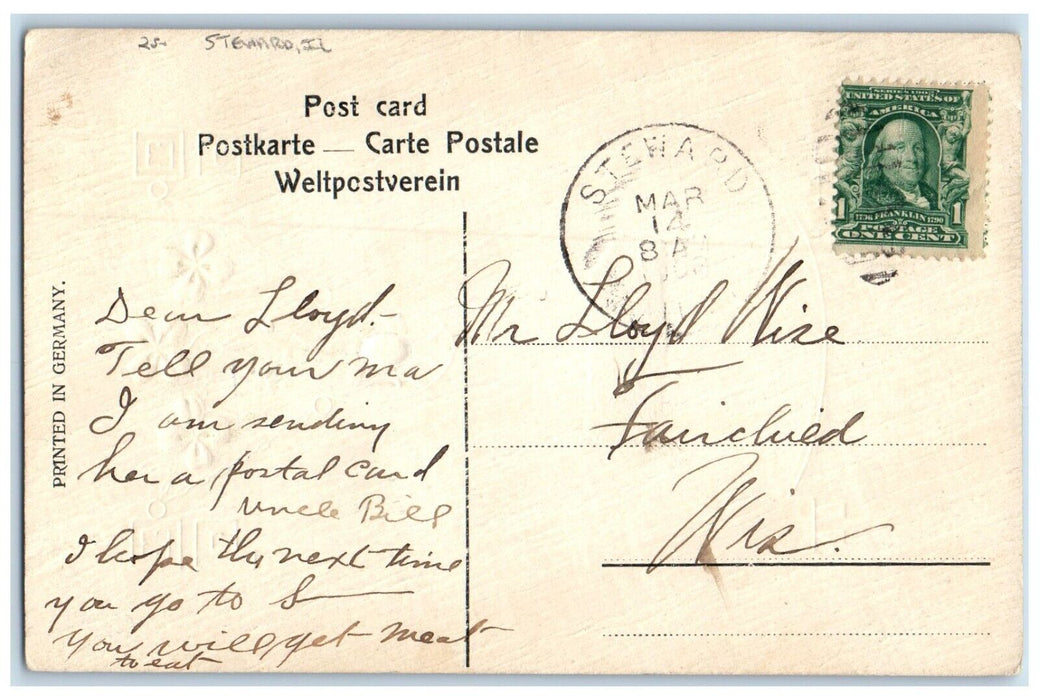 25- STEWARD, IL
Post card
Postkarte — Carte Postale
Weltpostverein
PRINTED IN GERMANY.
STEWARD
MAR
14
8 AM
SERIES 1902
UNITED STATES OF
AMERICA
1 1736 FRANKLIN 1790 1
POSTAGE
ONE CENT
Dear Lloyd-
Tell your ma
I am sending
her a postal card
Uncle Bill
I hope the next time
you go to S——
you will get meat
to eat
Mr Lloyd Wise
Fairchild
Wis.